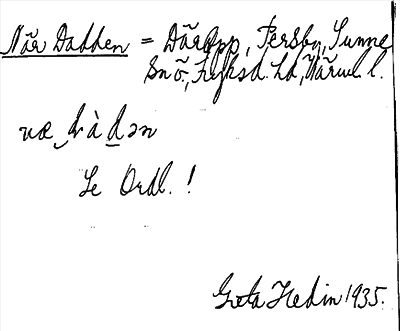 När Dadden = Därupp, Persby, Sunne
sn o., Fryksd. hd, Värml. l.
Se Ordl. !
Greta Hedin 1935.